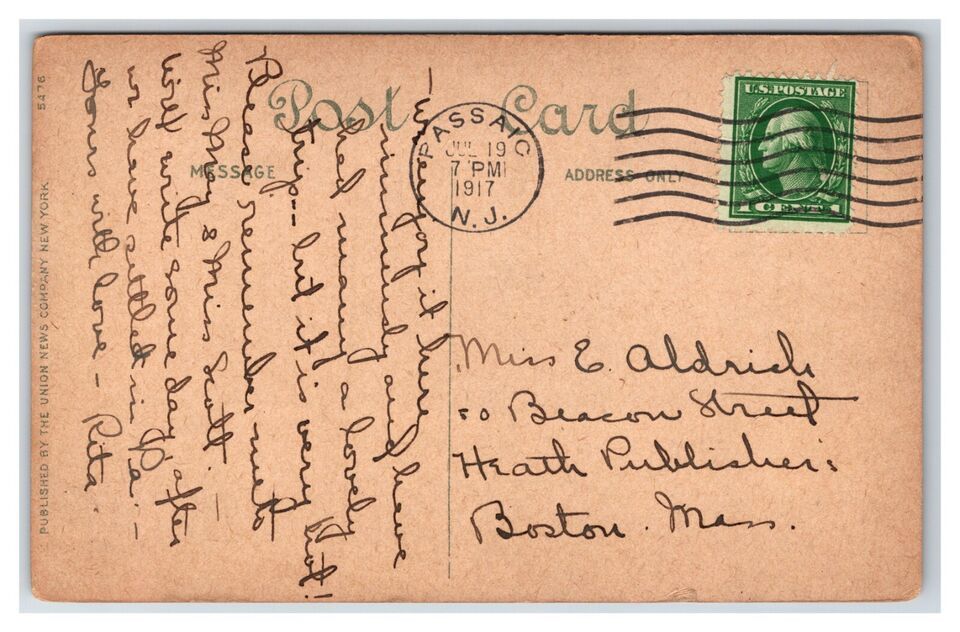 Post Card
MESSAGE
ADDRESS ONLY
U.S. POSTAGE
1 CENT 1
PASSAIC
JUL 19
7 PM
1917
N.J.
– We enjoy it here
immensely and have
had many a lovely
trip – but it is very hot!
Please remember me to
Miss May & Miss Scott. –
Will write some day after
we have settled in Pa. –
Yours with love – Rita.
Miss E. Aldrich
50 Beacon Street
Heath Publishers
Boston. Mass.
PUBLISHED BY THE UNION NEWS COMPANY NEW YORK
5476